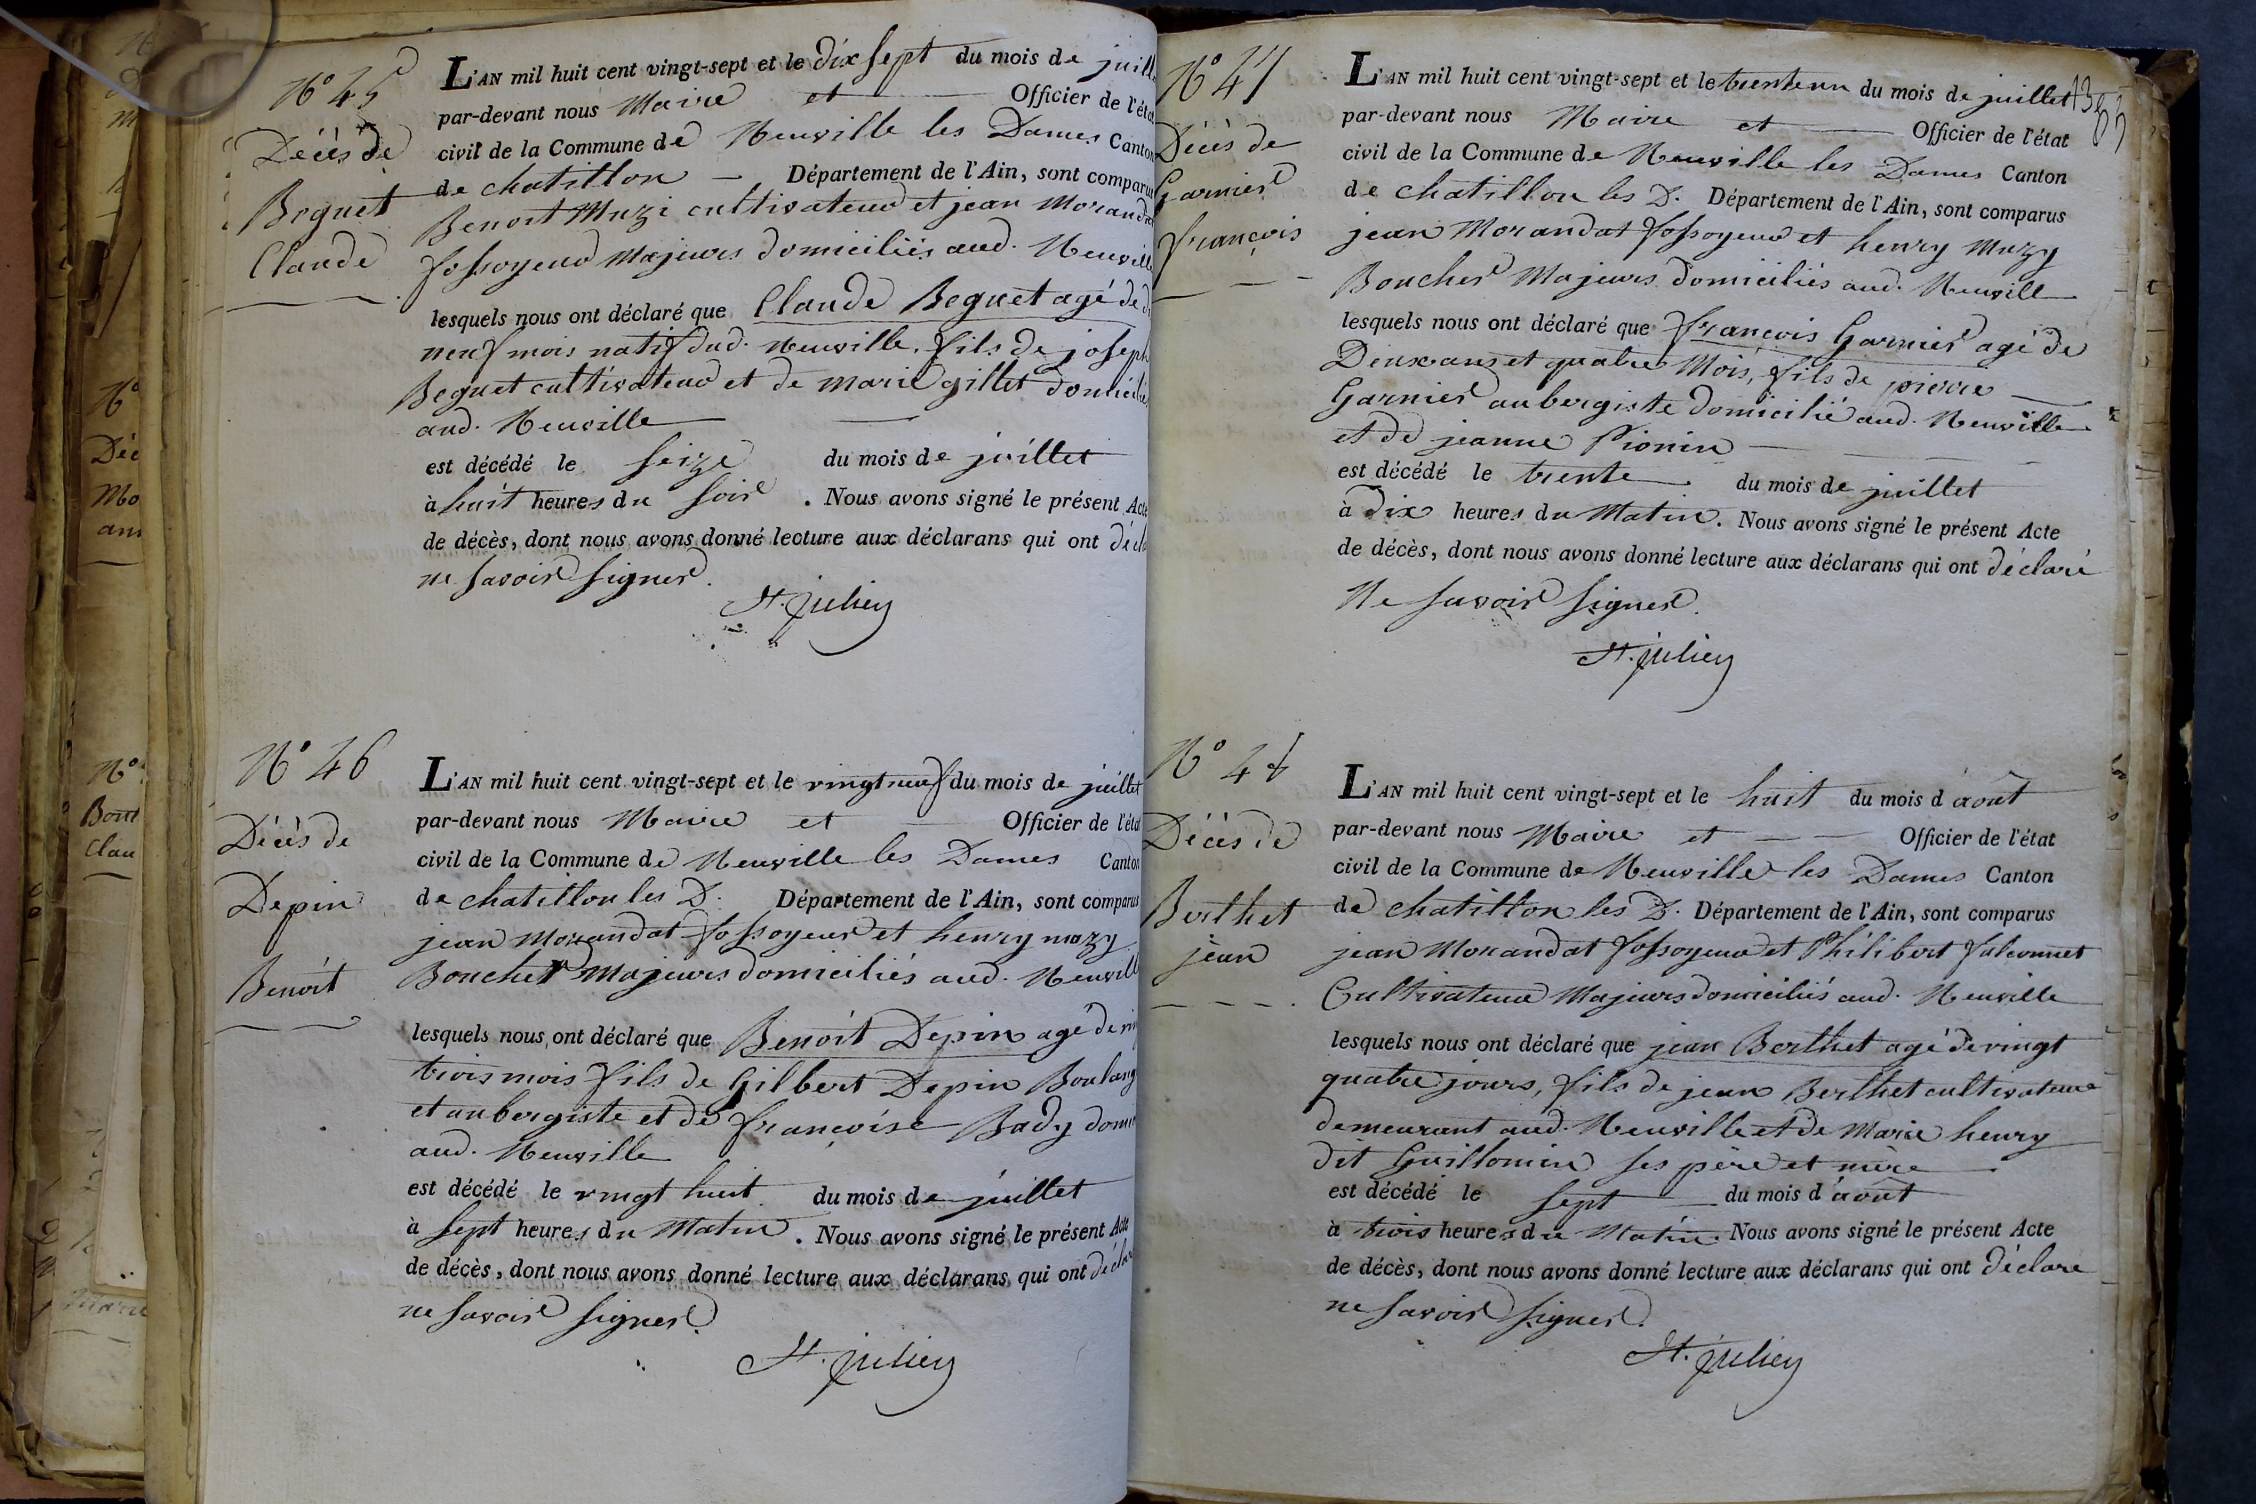 N° 45
Décès de
Beguet
Claude
L'AN mil huit cent vingt-sept et le dix sept du mois de juill
par-devant nous Maire et Officier de l'état
civil de la Commune de Neuville les Dames Canton
de chatillon — Département de l'Ain, sont comparus
Benoit Muzi cultivateur et jean Morandat
fossoyeur Majeurs domiciliés aud. Neuville
lesquels nous ont déclaré que Claude Beguet agé de
neuf mois natif dud. Neuville, fils de joseph
Beguet cultivateur et de marie gillet domiciliés
aud. Neuville
est décédé le seize du mois de juillet
à huit heures du soir. Nous avons signé le présent Acte
de décès, dont nous avons donné lecture aux déclarans qui ont décla
ne savoir signer.
St. julien
N° 46
Décès de
Depin
Benoit
L'AN mil huit cent vingt-sept et le vingt neuf du mois de juillet
par-devant nous Maire et Officier de l'état
civil de la Commune de Neuville les Dames Canton
de chatillon les D. Département de l'Ain, sont comparus
jean Morandat fossoyeur et henry muzy
Boucher Majeurs domiciliés aud. Neuville
lesquels nous ont déclaré que Benoit Depin agé de
trois mois fils de Gilbert Depin Boulang
et aubergiste et de françoise Bady domi
aud. Neuville
est décédé le vingt huit du mois de juillet
à sept heures du Matin. Nous avons signé le présent Acte
de décès, dont nous avons donné lecture aux déclarans qui ont déclaré
ne savoir signer.
St. julien
N° 47
Décès de
Garnier
françois
L'AN mil huit cent vingt-sept et le trente un du mois de juillet
par-devant nous Maire et Officier de l'état
civil de la Commune de Neuville les Dames Canton
de chatillon les D. Département de l'Ain, sont comparus
jean Morandat fossoyeur et henry Muzy
Boucher Majeurs domiciliés aud. Neuville
lesquels nous ont déclaré que françois Garnier agé de
Deux ans et quatre Mois, fils de pierre
Garnier aubergiste domicilié aud. Neuville
et de jeanne Pionin
est décédé le trente du mois de juillet
à Dix heures du Matin. Nous avons signé le présent Acte
de décès, dont nous avons donné lecture aux déclarans qui ont déclaré
Ne savoir signer.
St. julien
N° 48
Décès de
Berthet
jean
L'AN mil huit cent vingt-sept et le huit du mois d'août
par-devant nous Maire et — Officier de l'état
civil de la Commune de Neuville les Dames Canton
de chatillon les D. Département de l'Ain, sont comparus
jean Morandat fossoyeur et Philibert falconnet
Cultivateur Majeurs domiciliés aud. Neuville
lesquels nous ont déclaré que jean Berthet agé de vingt
quatre jours, fils de jean Berthet cultivateur
demeurant aud. Neuville et de Marie henry
dit Guillomin ses père et mère
est décédé le sept du mois d'août
à trois heures du Matin. Nous avons signé le présent Acte
de décès, dont nous avons donné lecture aux déclarans qui ont déclaré
ne savoir signer.
St. julien